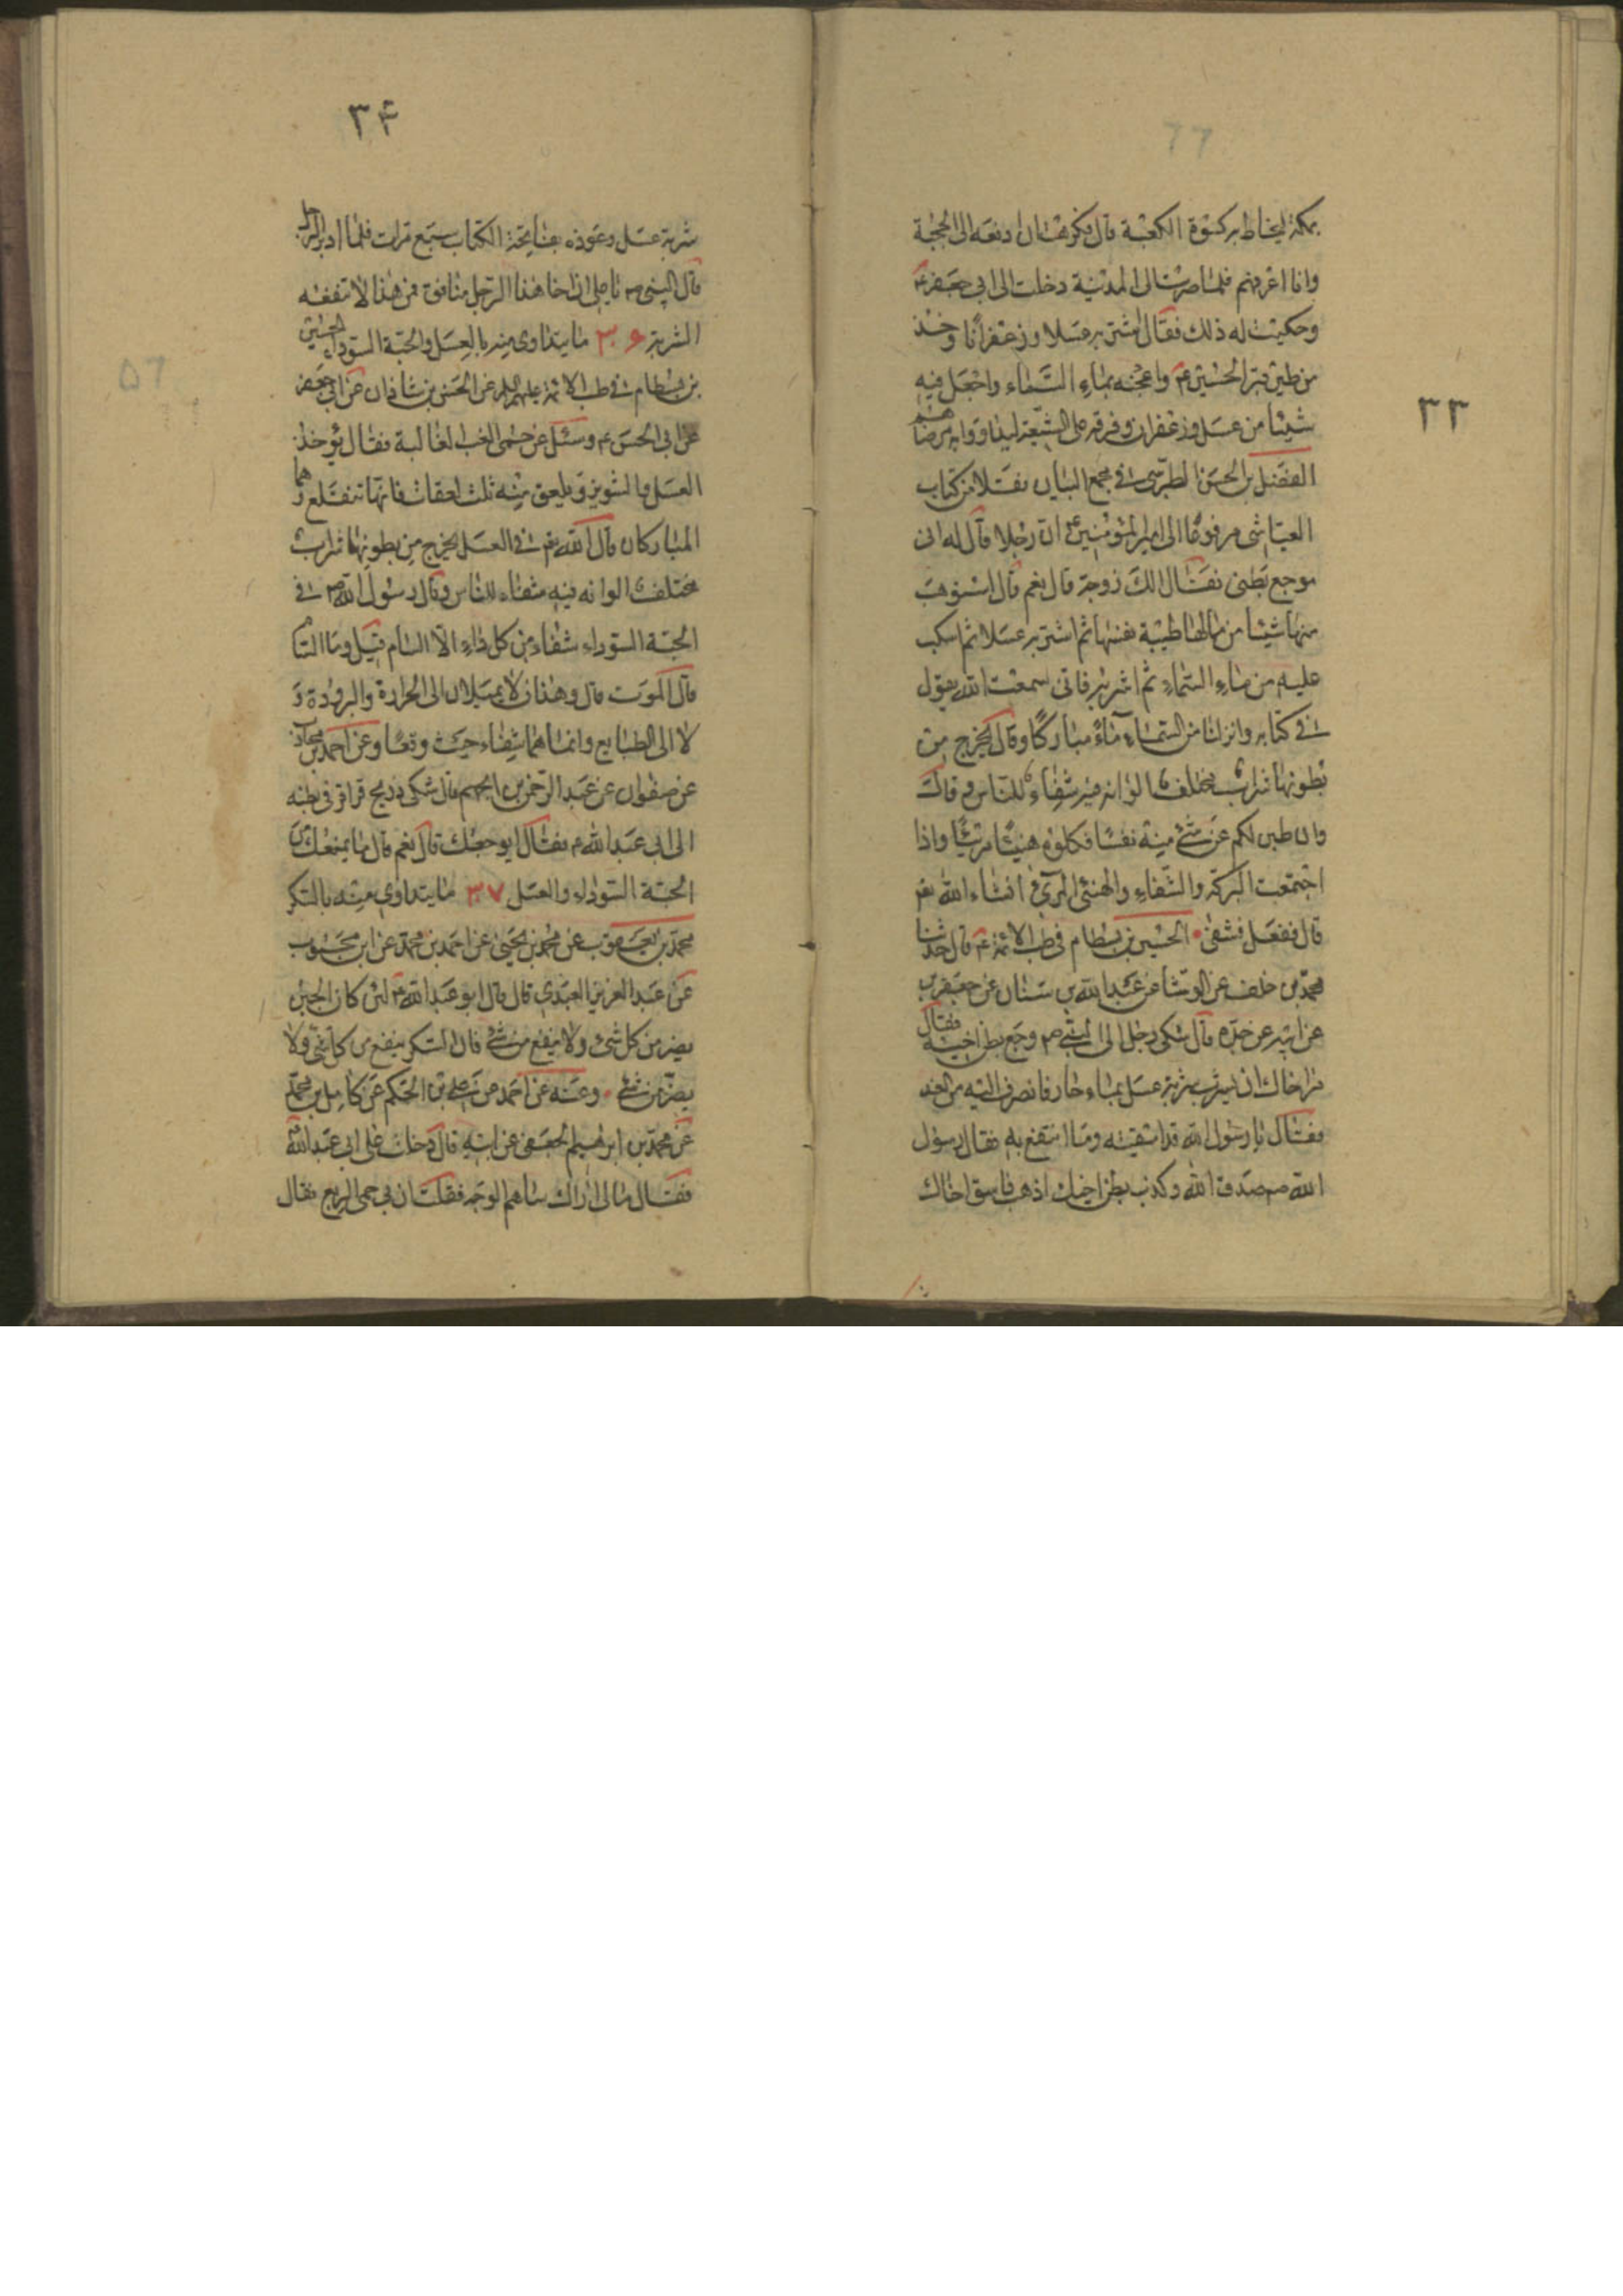 ٣٣
بمكة ليخاط به كسوة الكعبة قال فكرهت ان ادفعه الى الحجبة
وانا اعرفهم فلما صرت الى المدينة دخلت الى ابى جعفر ع
وحكيت له ذلك فقال اشتر به عسلا وزعفرانا وخذ
من طين قبر الحسين ع واعجنه بماء السماء واجعل فيه
شيئا من عسل وزعفران وفرقه على الشيعة ليداووا به مرضاهم
الفضل بن الحسن الطبرسى فى مجمع البيان نقلا من كتاب
العياشى مرفوعا الى امير المؤمنين ع ان رجلا قال له انى
موجع بطنى فقال الك زوجة قال نعم قال استوهب
منها شيئا من مالها طيبة نفسها ثم اشتر به عسلا ثم اسكب
عليه من ماء السماء ثم اشربه فانى سمعت الله يقول
فى كتابه وانزلنا من السماء ماء مباركا وقال يخرج من
بطونها شراب مختلف الوانه فيه شفاء للناس وقال
وان طبن لكم عن شئ منه نفسا فكلوه هنيئا مريئا واذا
اجتمعت البركة والشفاء والهنئ المرئ انشاء الله نعم
قال ففعل فشفى • الحسين بن بسطام فى طب الائمة ع قال حدثنا
محمد بن خلف عن الوشا عن عبد الله بن سنان عن جعفر بن
عن ابيه عن جده قال شكى رجل الى النبى ص وجع بطن اخيه فقال
مر اخاك ان يشرب شربة عسل بماء حار فانصرف اليه من الغد
فقال يا رسول الله قد اسقيته وما انتفع به فقال رسول
الله ص صدق الله وكذب بطن اخيك اذهب فاسق اخاك
٣۴
شربة عسل وعوذه بفاتحة الكتاب سبع مرات فلما ادبر الرجل
قال النبى ص يا على ان اخا هذا الرجل منافق فمن هذا لا تنفعه
الشربة ٣۶ ما يتداوى منه بالعسل والحبة السوداء الحسين
بن بسطام فى طب الائمة عليهم السلام عن الحسن بن شاذان عن ابى جعفر
عن ابى الحسن ع وسئل عن حمى الغب الغالبة فقال يؤخذ
العسل والشونيز ويلعق منه ثلث لعقات فانها تنقلع وهما
المباركان قال الله نعم فى العسل يخرج من بطونها شراب
مختلف الوانه فيه شفاء للناس وقال رسول الله ص فى
الحبة السوداء شفاء من كل داء الا السام قيل وما السام
قال الموت قال وهذان لا يميلان الى الحرارة والبرودة و
لا الى الطبايع وانما هما شفاء حيث وقعا وعن احمد بن
عن صفوان عن عبد الرحمن بن الجهم قال شكى ذريح قراقر فى بطنه
الى ابى عبد الله ع فقال ايوجعك قال نعم قال ما يمنعك من
الحبة السوداء والعسل ٣٧ ما يتداوى منه بالسكر
محمد بن يعقوب عن محمد بن يحيى عن احمد بن محمد عن ابن محبوب
عن عبد العزيز العبدى قال قال ابو عبد الله ع لئن كان الجبن
يضر من كل شئ ولا ينفع من شئ فان السكر ينفع من كل شئ ولا
يضر من شئ • وعنه عن احمد عن على بن الحكم عن كامل بن محمد
عن محمد بن ابرهيم الجعفى عن ابيه قال دخلت على ابى عبد الله ع
فقال مالى اراك ساهم الوجه فقلت ان بى حمى الربع فقال